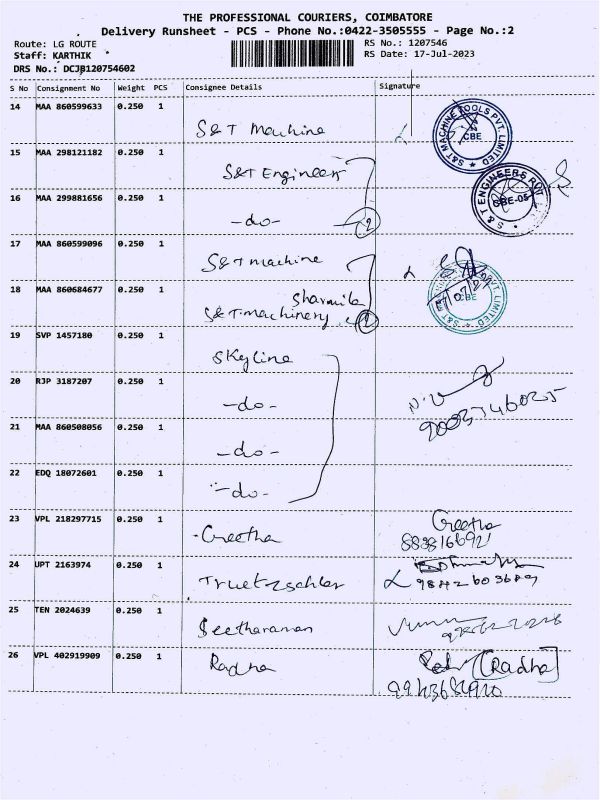 THE PROFESSIONAL COURIERS, COIMBATORE
Delivery Runsheet - PCS - Phone No.:0422-3505555 - Page No.:2
Route: LG ROUTE RS No.: 1207546
Staff: KARTHIK RS Date: 17-Jul-2023
DRS No.: DCJB120754602
S No Consignment No Weight PCS Consignee Details Signature
14 MAA 860599633 0.250 1
S&T Machine
S&T MACHINE TOOLS PVT. LIMITED ★ CBE
15 MAA 298121182 0.250 1
S&T Engineers
S&T ENGINEERS PVT. LIMITED CBE-05
16 MAA 299881656 0.250 1
-do- 2
17 MAA 860599096 0.250 1
S&T machine
18 MAA 860684677 0.250 1
Sharmila
S&T. machinery 2
S&T LIMITED ★ CBE
19 SVP 1457180 0.250 1
Skyline
20 RJP 3187207 0.250 1
-do-
21 MAA 860508056 0.250 1
-do-
22 EDQ 18072601 0.250 1
-do-
23 VPL 218297715 0.250 1
Geetha
Geetha
24 UPT 2163974 0.250 1
Truetzschler
9842603689
25 TEN 2024639 0.250 1
Seetharaman
26 VPL 402919909 0.250 1
Radha
[Radha]